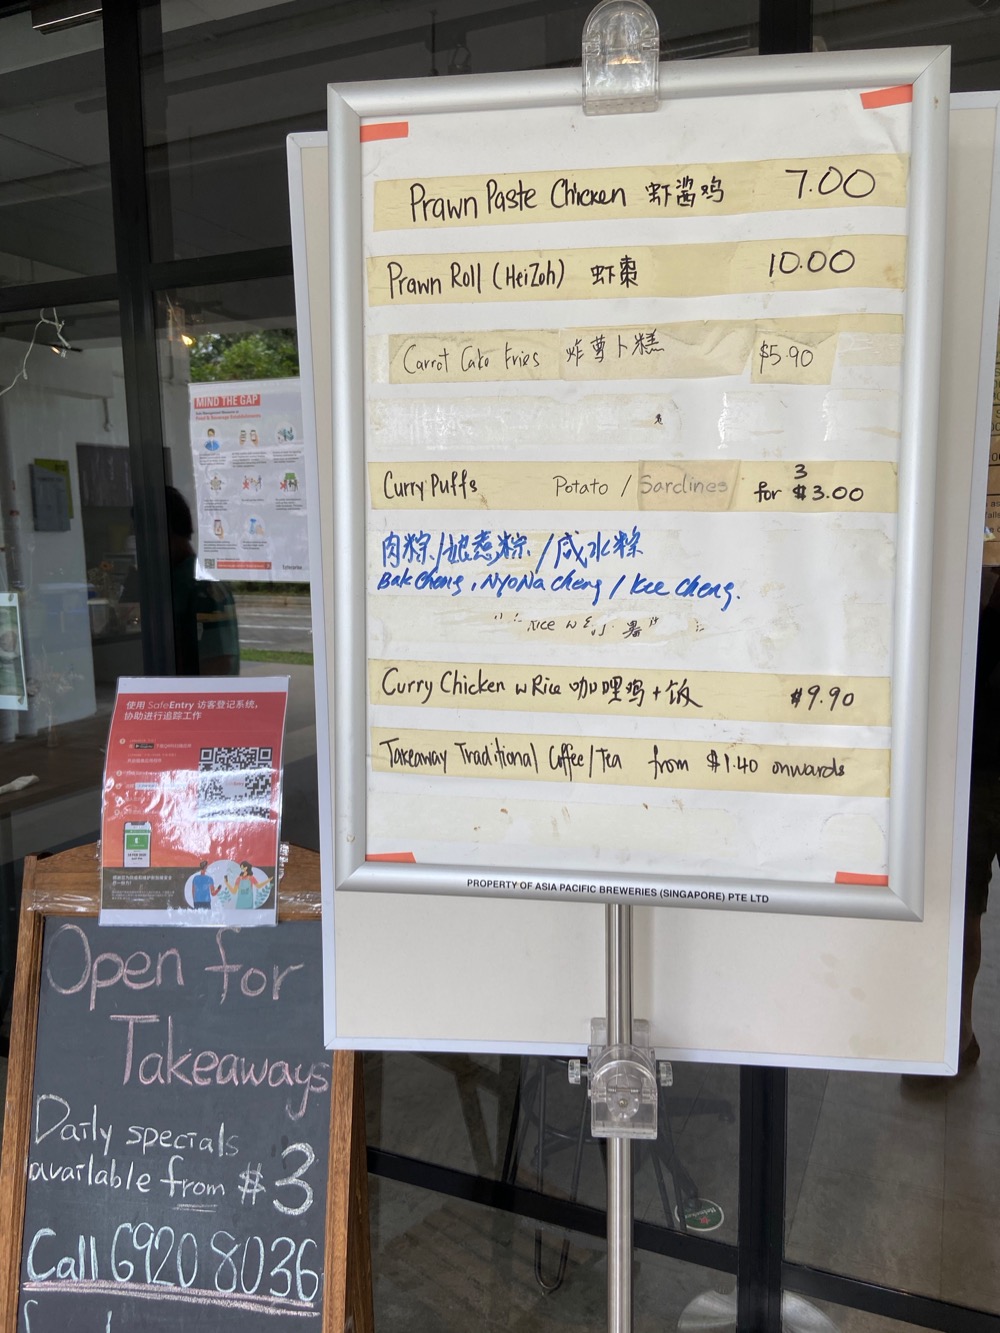 Prawn Paste Chicken 虾酱鸡 7.00
Prawn Roll (Hei Zoh) 虾枣 10.00
Carrot Cake Fries 炸萝卜糕 $5.90
Curry Puffs Potato / Sardines 3 for $3.00
肉粽/娘惹粽/咸水粽
Bak Chang, NyoNa Chang / Kee Chang.
Rice w
Curry Chicken w Rice 咖哩鸡+饭 $9.90
Takeaway Traditional Coffee/Tea from $1.40 onwards
PROPERTY OF ASIA PACIFIC BREWERIES (SINGAPORE) PTE LTD
MIND THE GAP
Food & Beverage Establishments
使用 SafeEntry 访客登记系统,
协助进行追踪工作
Open for
Takeaways
Daily specials
available from $3
Call 6920 8036
Heineken